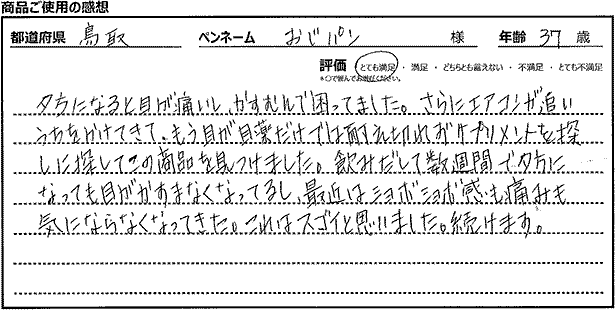 商品ご使用の感想
都道府県 鳥取 ペンネーム おじパン 様 年齢 37 歳
評価 とても満足・満足・どちらとも言えない・不満足・とても不満足
*○で囲んでお選びください。
夕方になると目が痛いし、かすむんで困ってました。さらにエアコンが追い
うちをかけてきて、もう目が目薬だけでは耐え切れずサプリメントを探
しに探してこの商品を見つけました。飲みだして数週間で夕方に
なっても目がかすまなくなってるし、最近はショボショボ感も痛みも
気にならなくなってきた。これはスゴイと思いました。続けます。